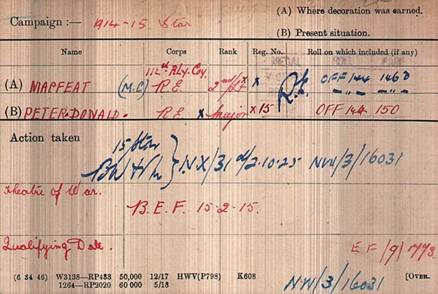 Campaign :— 1914-15 Star
(A) Where decoration was earned.
(B) Present situation.
Name Corps Rank Reg. No. Roll on which included (if any)
(A) MACFEAT (M.C) 112th Rly. Coy. R.E. 2nd Lt x OFF 144 146B
(B) PETER DONALD. R.E x Major x15 OFF 144 150
Action taken
15 Star
BW & V } NX/31 d/2-10-25 NW/3/16031
Theatre of War.
B.E.F. 15-2-15.
Qualifying Date.
EF/9/
(6 34 46) W3138—RP453 50,000 12/17 HWV(P798) K608
1264—RP2020 60 000 5/18
NW/3/16031
[OVER.